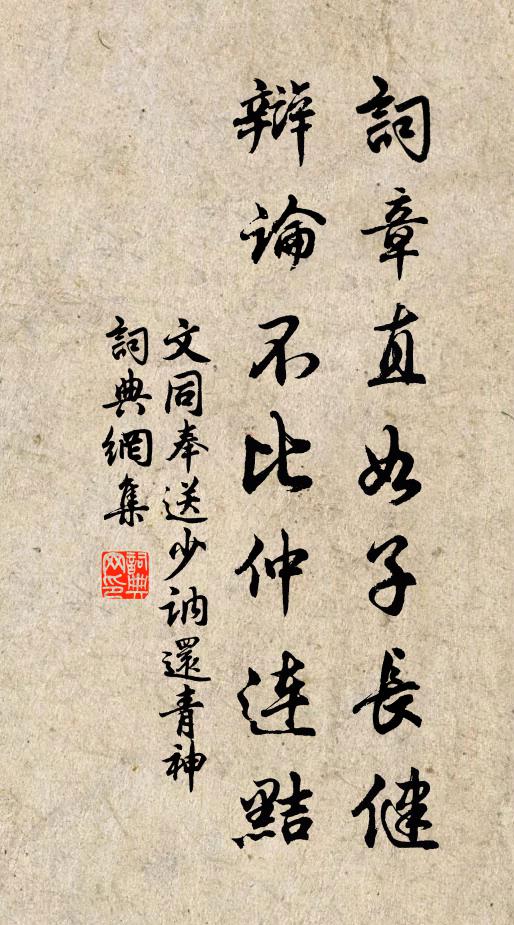 詞章直如子長健
辯論不比仲連黠
文同奉送少訥還青神
詞典網集
詞典網印